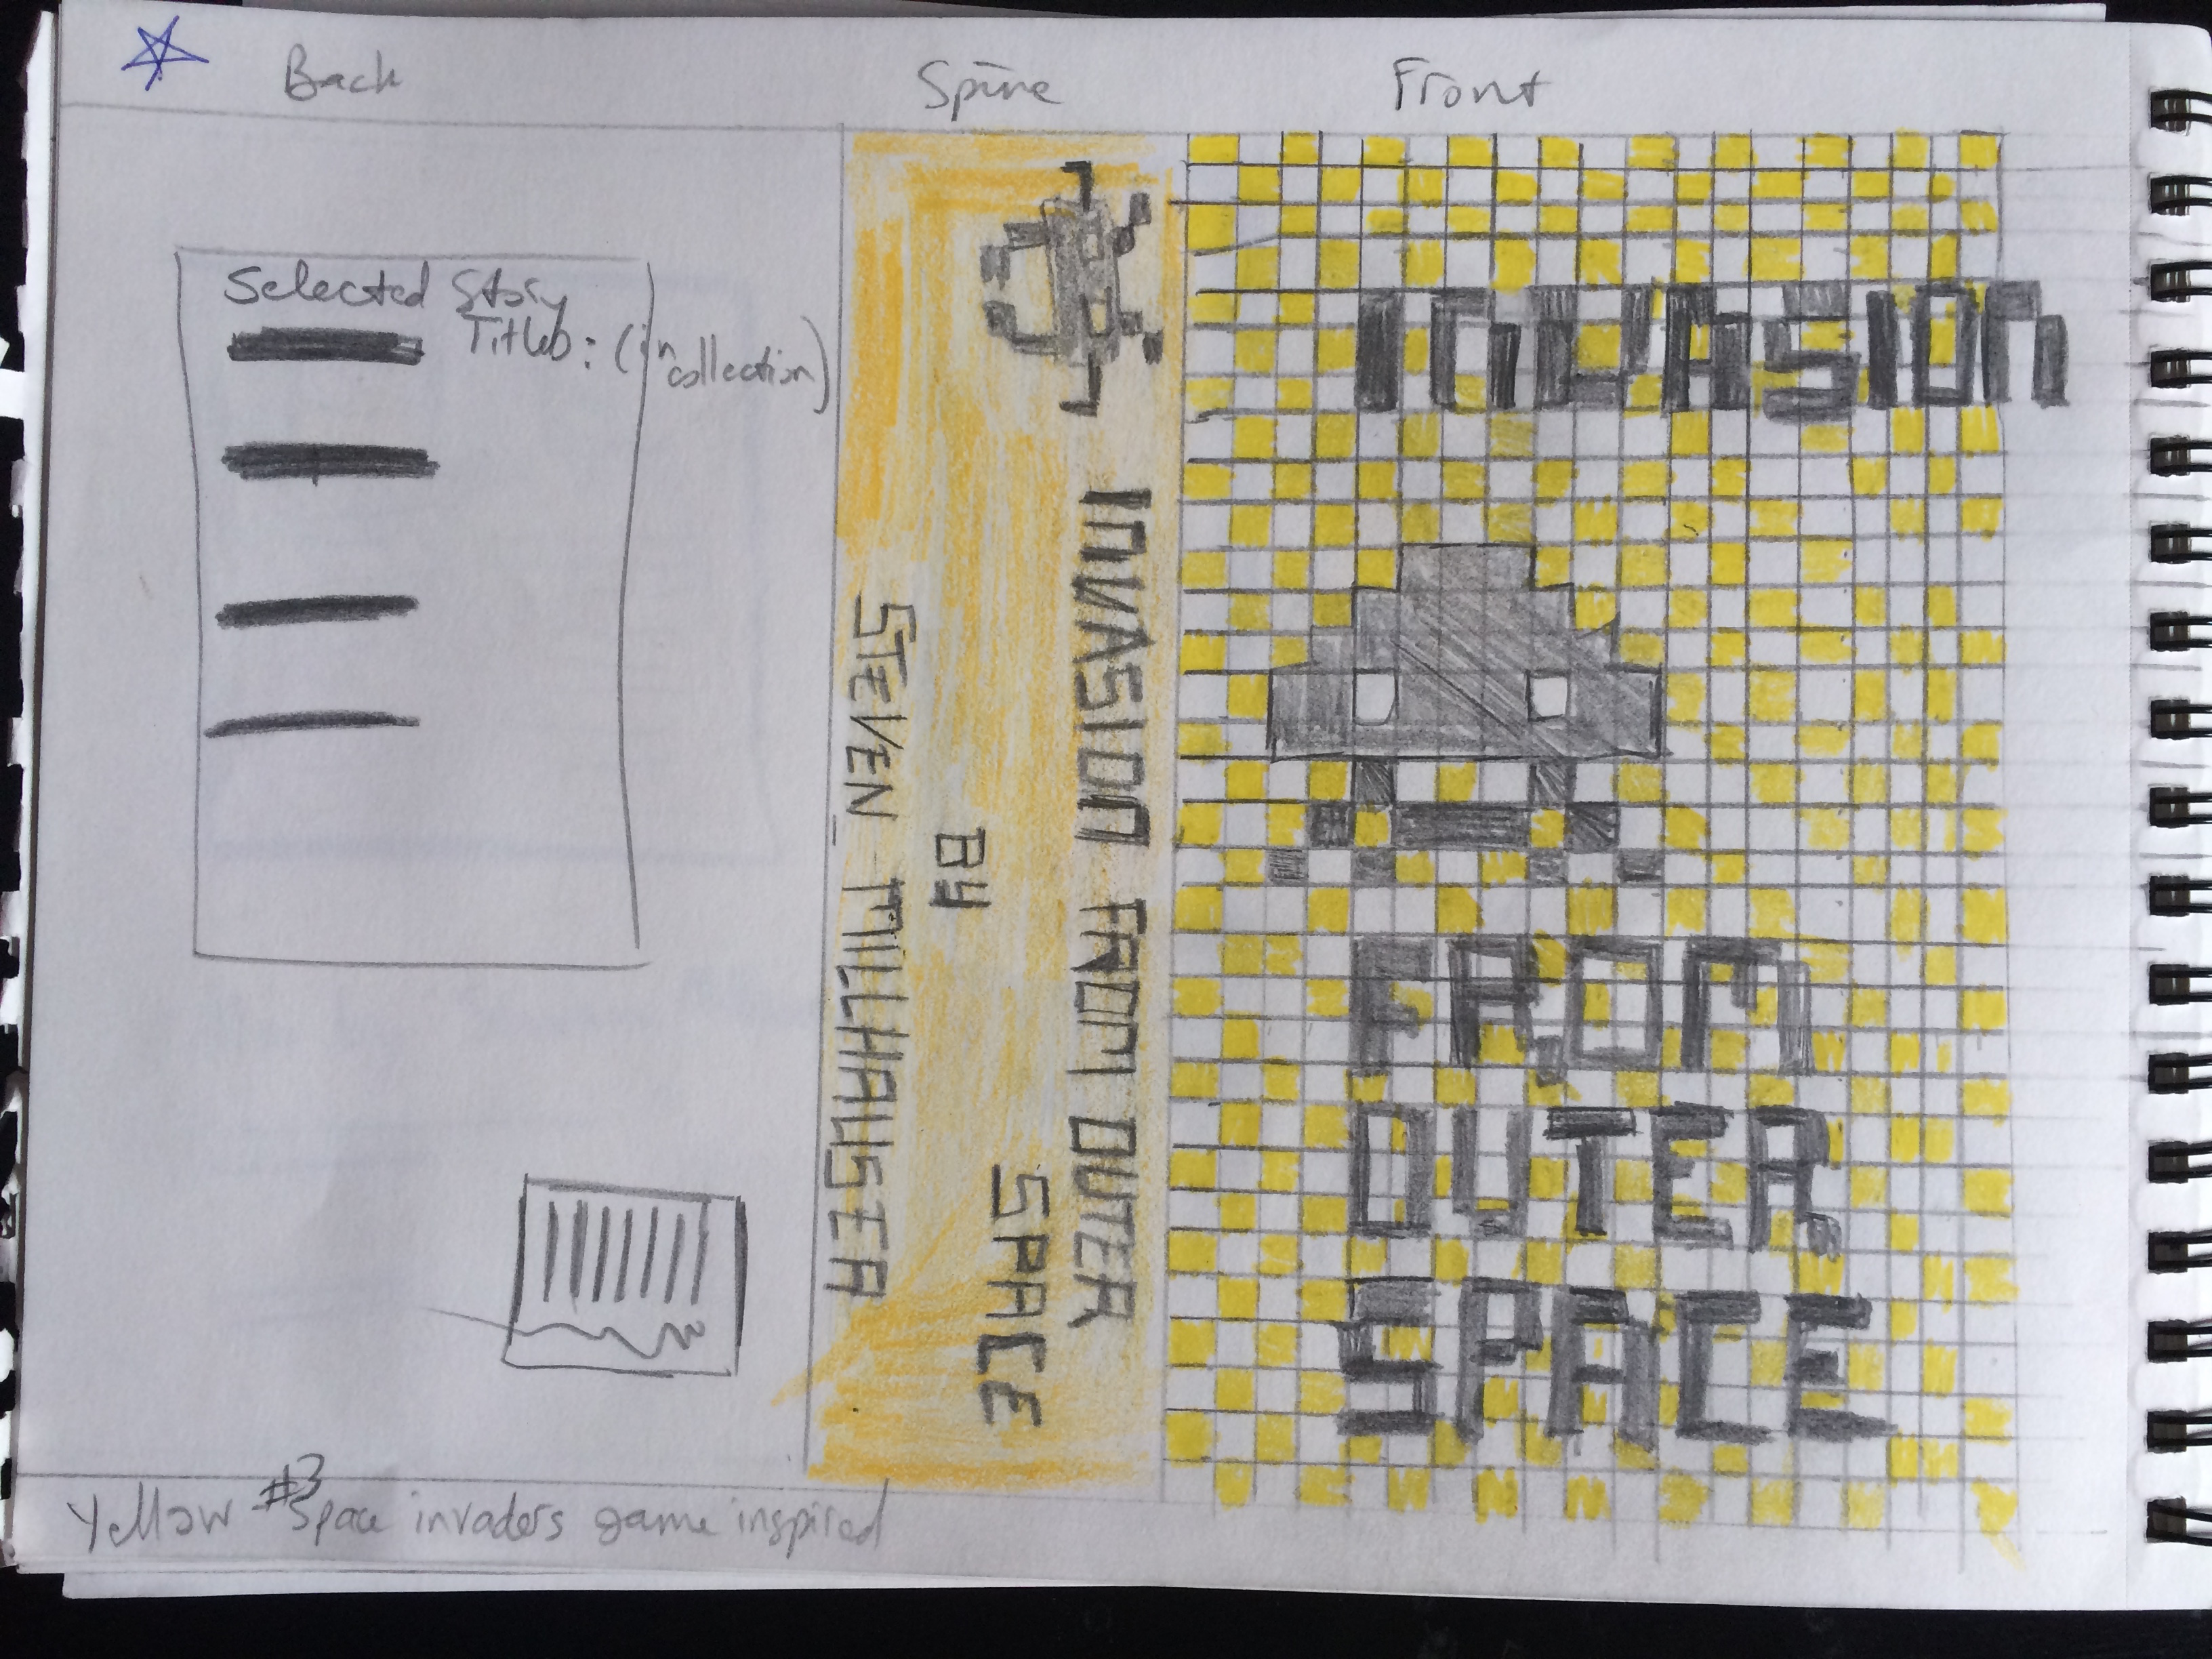 Back
Spine
Front
Selected Story
Titles: (in
collection)
INVASION FROM OUTER
SPACE
BY
STEVEN MILLHAUSER
INVASION
FROM
OUTER
SPACE
#3
Yellow Space invaders game inspired